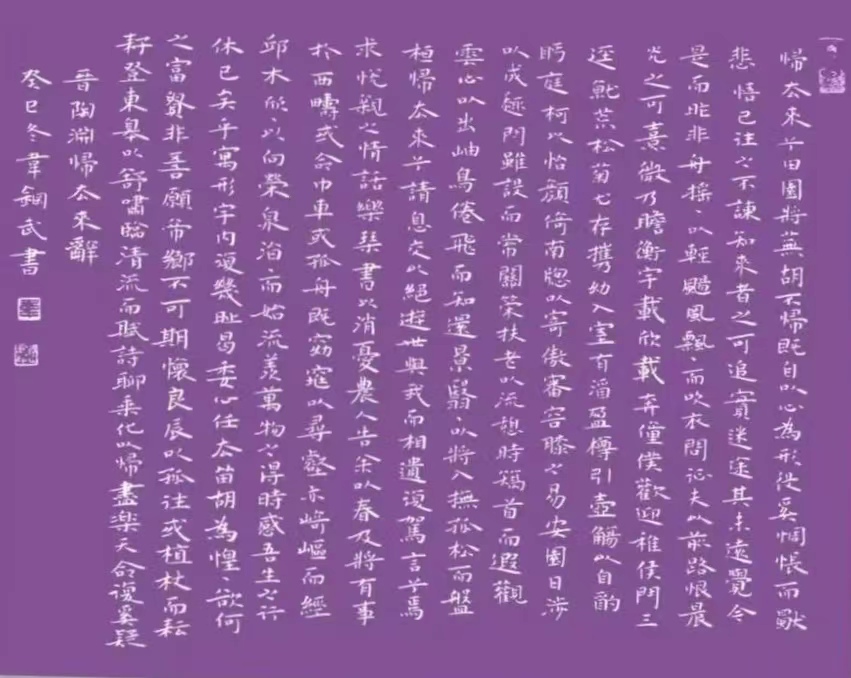 歸去来兮田園將蕪胡不歸既自以心為形役奚惆悵而獨
悲悟已往之不諫知来者之可追實迷途其未遠覺今
是而昨非舟搖、以輕颺風飄、而吹衣問征夫以前路恨晨
光之可熹微乃瞻衡宇載欣載奔僮僕歡迎稚侯門三
逕就荒松菊尤存攜幼入室有酒盈樽引壺觴以自酌
眄庭柯以怡顏倚南牕以寄傲審容膝之易安園日涉
以成趣門雖設而常關策扶老以流憩時矯首而遐觀
雲心以出岫鳥倦飛而知還景翳、以將入撫孤松而盤
桓歸去来兮請息交以絕遊世與我而相遺復駕言兮焉
求悅親之情話樂琴書以消憂農人告余以春及將有事
於西疇或命巾車或孤舟既窈窕以尋壑亦崎嶇而經
邱木欣、以向榮泉涓、而始流羨萬物之得時感吾生之行
休已矣乎寓形宇内復幾時曷委心任去留胡為惶、欲何
之富貴非吾願帝鄉不可期懷良辰以孤往或植杖而耘
耔登東皋以舒嘯臨清流而賦詩聊乘化以歸盡樂天命復奚疑
晉陶淵歸去来辭
癸巳冬韋鋼武書